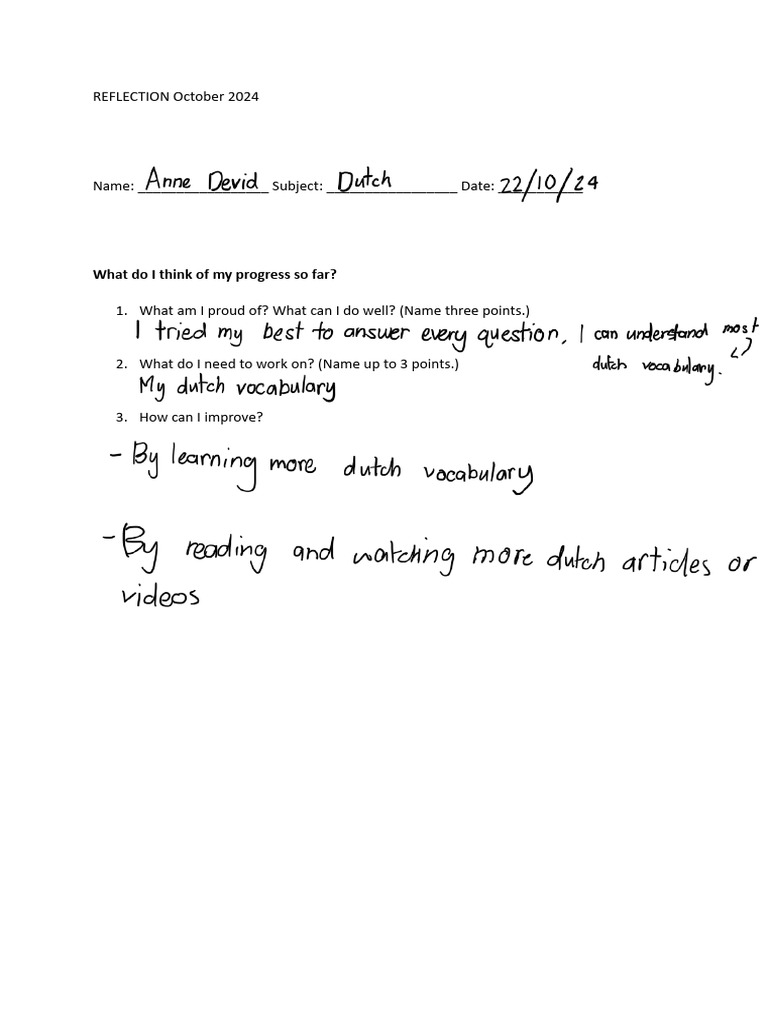 REFLECTION October 2024
Name: Anne Devid Subject: Dutch Date: 22/10/24
What do I think of my progress so far?
1. What am I proud of? What can I do well? (Name three points.)
I tried my best to answer every question, I can understand most
dutch vocabulary.
2. What do I need to work on? (Name up to 3 points.)
My dutch vocabulary
3. How can I improve?
- By learning more dutch vocabulary
- By reading and watching more dutch articles or
videos